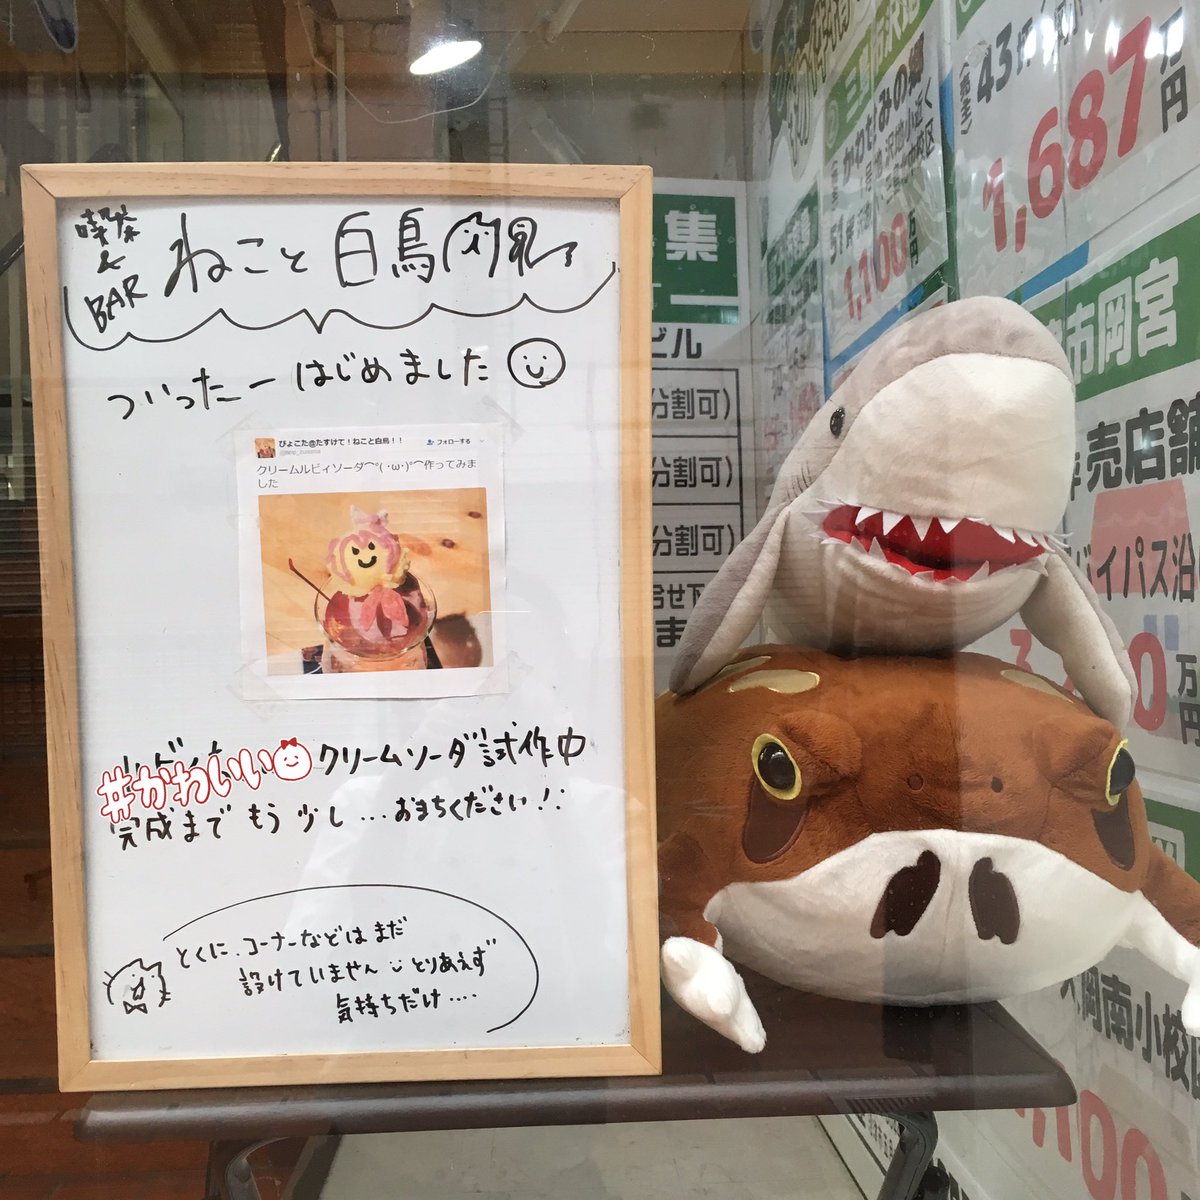 喫茶
&
BAR
ねこと白鳥
ついったーはじめました
ぴょこた@たすけて！ねこと白鳥！！
フォローする
クリームルビィソーダ⌒°(･ω･)°⌒作ってみま
した
#かわいい
クリームソーダ試作中
完成までもう少し...おまちください！！
とくに、コーナーなどはまだ
設けていません とりあえず
気持ちだけ....
集
ビル
分割可)
分割可)
分割可)
かわせみの郷
1,100万円
43坪
1,687万円
市岡宮
売店舗
バイパス沿
万円
岡南小校区